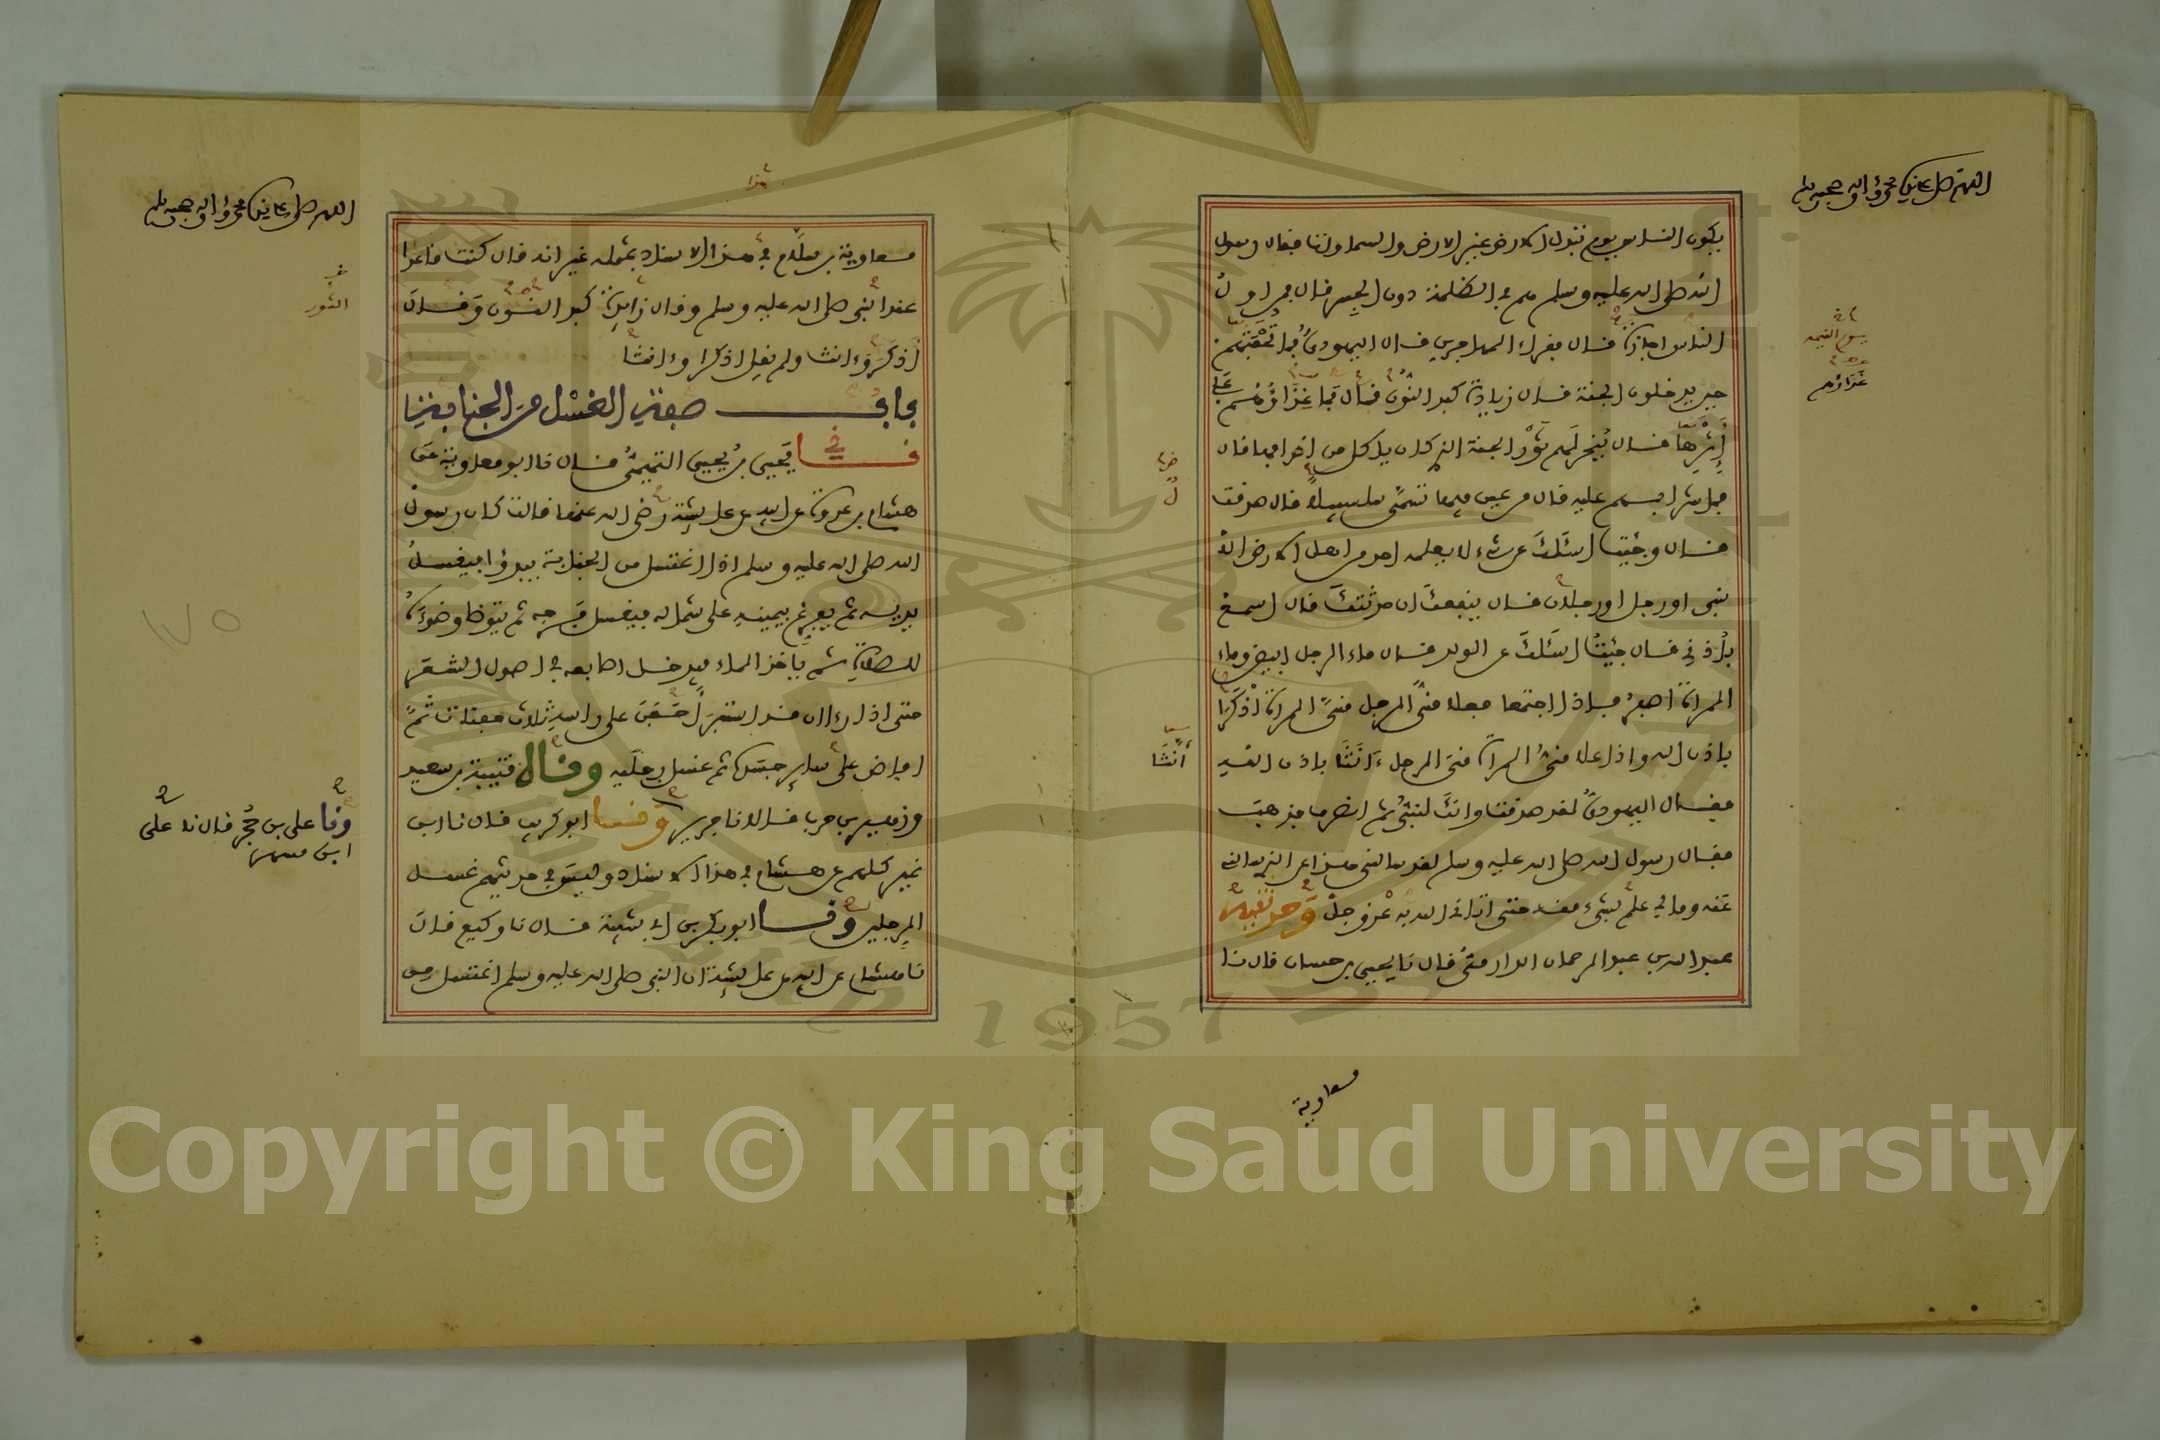 اللهم صل على سيدنا محمد وءاله وصحبه وسلم
يكون الناس يوم تبدل الارض غير الارض والسماوات فقال رسول
الله صلى الله عليه وسلم هم في الظلمة دون الجسر قال فمن اول
الناس اجازة قال فقراء المهاجرين قال اليهودي فما تحفتهم
حين يدخلون الجنة قال زيادة كبد النون قال فما غذاؤهم على
إثرها قال ينحر لهم ثور الجنة الذي كان ياكل من اطرافها قال
فما شرابهم عليه قال من عين فيها تسمى سلسبيلا قال صدقت
قال وجئت اسئلك عن شيء لا يعلمه احد من اهل الارض الا
نبي او رجل او رجلان قال ينفعك ان حدثتك قال اسمع
بأذني قال جئت اسئلك عن الولد قال ماء الرجل ابيض وماء
المراة اصفر فاذا اجتمعا فعلا مني الرجل مني المراة اذكرا
باذن الله واذا علا مني المراة مني الرجل ءانثا باذن الله
فقال اليهودي لقد صدقت وانك لنبي ثم انصرف فذهب
فقال رسول الله صلى الله عليه وسلم لقد سالني هذا عن الذي سالني
عنه وما لي علم بشيء منه حتى اتاني الله به عز وجل وحدثنيه
عبد الله بن عبد الرحمان الدارمي قال نا يحيى بن حسان قال نا
يوم القيمة
غذاؤهم
أنثا
معاوية
اللهم صل على سيدنا محمد وءاله وصحبه وسلم
معاوية بن سلام في هذا الاسناد بمثله غير انه قال كنت قاعدا
عند النبي صلى الله عليه وسلم وقال زايدة كبد النون وقال
اذكر وءانثا ولم يقل اذكرا وءانثا
باب صفة الغسل من الجنابة
نا يحيى بن يحيى التميمي قال نا ابو معاوية عن
هشام بن عروة عن ابيه عن عايشة رضي الله عنها قالت كان رسول
الله صلى الله عليه وسلم اذا اغتسل من الجنابة يبدؤا فيغسل
يديه ثم يفرغ بيمينه على شماله فيغسل فرجه ثم يتوضا وضوءه
للصلاة ثم ياخذ الماء فيدخل اصابعه في اصول الشعر
حتى اذا راا ان قد استبرا حفن على راسه ثلاث حفنات ثم
افاض على ساير جسده ثم غسل رجليه ونا قتيبة بن سعيد
وزهير بن حرب قالا نا جرير ونا ابو كريب قال نا ابن
نمير كلهم عن هشام في هذا الاسناد وليس في حديثهم غسل
الرجلين ونا ابو بكر بن ابي شيبة قال نا وكيع قال
نا هشام عن ابيه عن عايشة ان النبي صلى الله عليه وسلم اغتسل من
الثور
ونا على بن حجر قال نا على
ابن مسهر
1957
Copyright © King Saud University